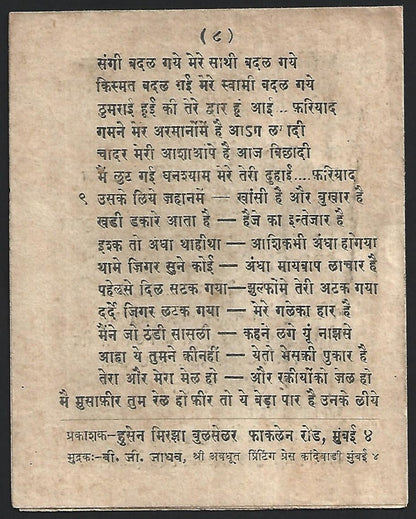 ( ८ )
संगी बदल गये मेरे साथी बदल गये
किस्मत बदल गई मेरे स्वामी बदल गये
ठुमराई हुई की तेरे द्वार हूं आई .. फ़रियाद
गमने मेर अरसानोंमें है आऽग लगादी
चादर मेरी आशाओंपे है आज बिछादी
मैं लुट गई घनश्याम मेरे तेरी दुहाई ....फ़रियाद
९ उसके लिये जहानमें — खांसी है और बुखार है
खडी डकारे आता है — हैजे का इन्तेजार है
इश्क तो अंधा थाहीथा — आशिकभी अंधा होगया
थामे जिगर सुने कोई — अंधा मायबाप लाचार है
पहेलुसे दिल सटक गया—झुल्फोमे तेरी अटक गया
दर्दे जिगर लटक गया — मेरे गलेका हार है
मैंने जो ठंडी सासली — कहने लगे यूं नाझसे
आहा ये तुमने कीनहीं — येतो भेसकी पुकार है
तेरा और मेरा मेल हो — और रकीयोंको जल हो
मै मुसाफ़ीर तुम रेल हो फ़ीर तो ये बेडा पार है उनके लीये
प्रकाशक-हुसेन मिरझा बुलसेलर फाकलेन रोड, मुंबई ४
मुद्रकः-बी. जी. जाधव, श्री अवधूत प्रिंटिंग प्रेस कांदेवाडी मुंबई ४